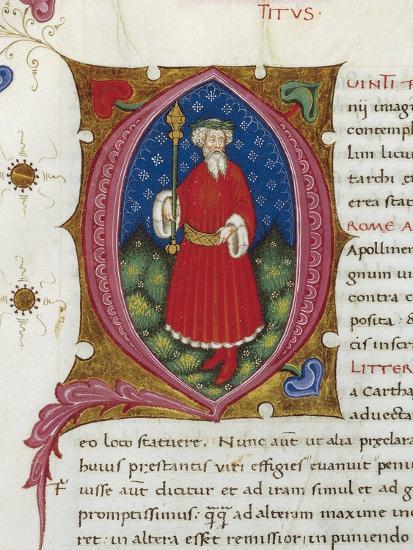 TITUS·
UINTI F
nij imag
contempl
lum licu
tarchi g
erea stat
ROME A
Apollinen
gnum ui
contra o
posita: &
cis inscri
LITTER
a Cartha
aduecta
eo loco statuere. Nunc aūt ut alia pręclara
huius pręstantis uiri effigies euanuit penu
uisse aūt dicitur et ad iram simul et ad g
promptissimus: qq̄ ad alteram maxime in
ret: in altera esset remissior: in puniendo